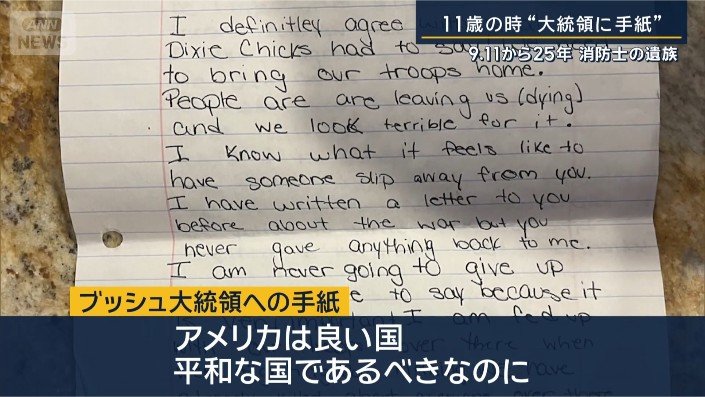 ANN
NEWS
11歳の時 “大統領に手紙”
9.11から25年 消防士の遺族
I definitley agree
Dixie Chicks had to
to bring our troops home.
People are are leaving us (dying)
and we look terrible for it.
I know what it feels like to
have someone slip away from you.
I have written a letter to you
before about the war but you
never gave anything back to me.
I am never going to give up
to say because it
I am fed up
over there when
have
ブッシュ大統領への手紙
アメリカは良い国
平和な国であるべきなのに